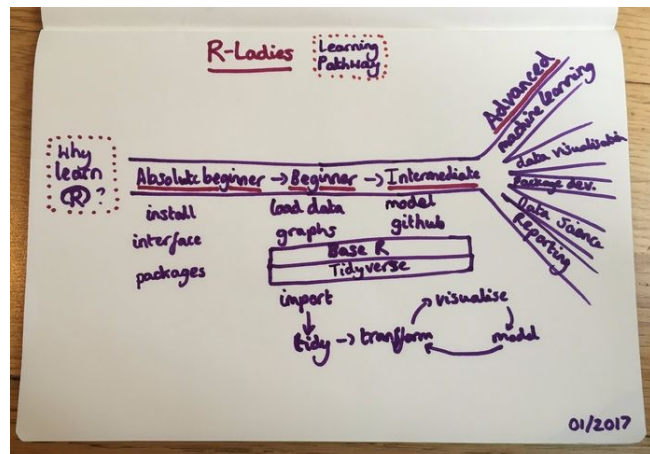 R-Ladies
Learning
Pathway
Why
learn
R?
Absolute beginner → Beginner → Intermediate
install
interface
packages
load data
graphs
model
github
Base R
Tidyverse
import
tidy → transform
visualise
model
Advanced
machine learning
data visualisation
Package dev.
Data Science
Reporting
01/2017